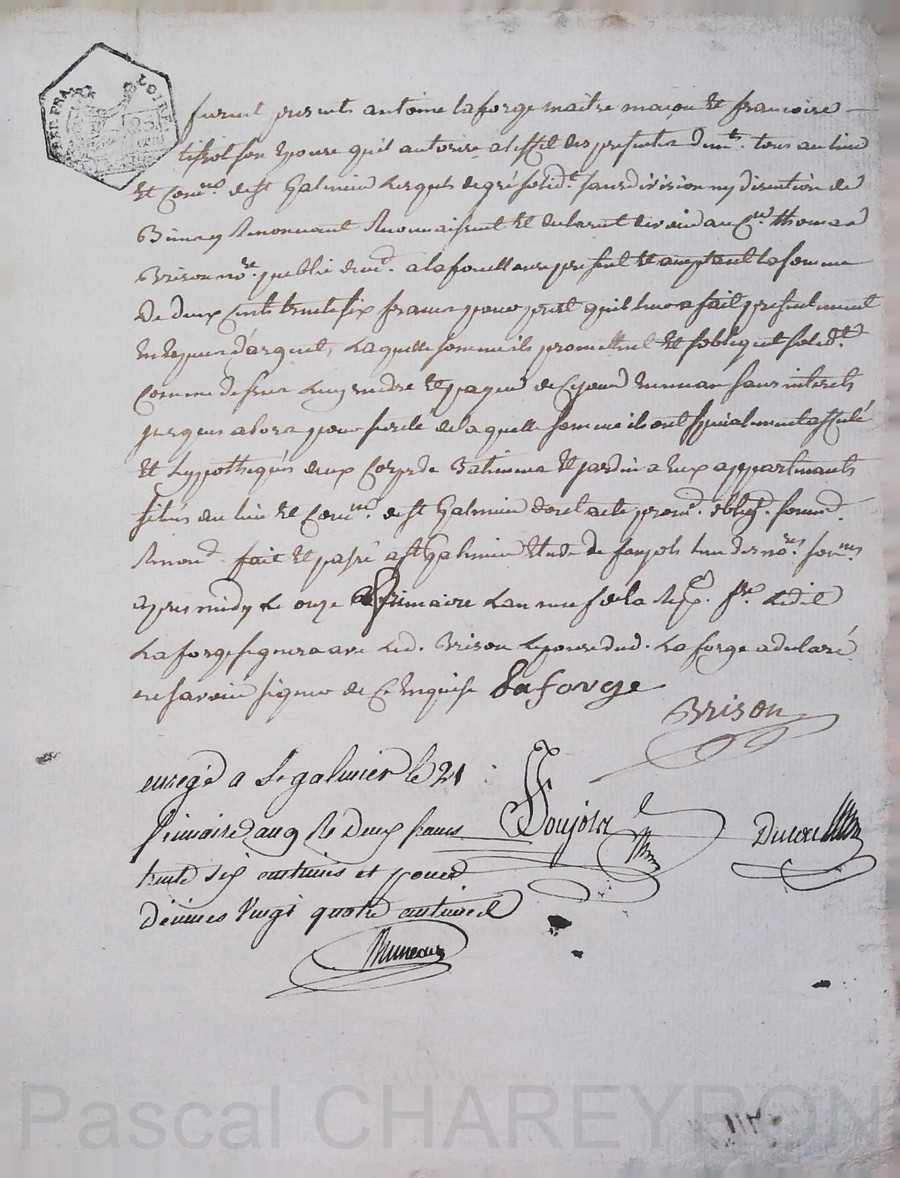 REP. FRA. LOIRE
furent presents antoine laforge maitre maçon et francoise
son epouse quil autorise a leffet des presentes demt. tous au lieu
et Comne. de st Galmier Lesquels de gré solidt. sans division ny discution de
Biens y Renonceant Reconnaissent et declarent devoir au Cen. thomas
Brison nore. public demt. a lafouillouse present et acceptant la somme
de deux cents trente six francs pour pret quil leur a fait presentement
en espece d'argent, Laquelle somme ils promettent et sobligent solidt.
comme dessus Luy rendre et payer de Ce jour en un an sans interets
jusques alors pour sureté de laquelle somme ils ont specialement affecté
et hypothequés deux Corps de Batiment et jardin a Eux appartenants
situés au lieu et Comne. de st Galmier dont acte prom. oblig. soum.
Renond. fait et passé a st Galmier Etude de foujols lun des nores. sousnes
apres midy Le onze frimaire Lan neuf de la Rep. fse. Ledit
Laforge signera avec Led. Brison Lepouse dud. Laforge a declaré
ne savoir signer de Ce Enquise Laforge
Brison
enregé a St galmier le 21
frimaire an 9 Rc Deux francs
Foujols
trente six centimes et pour
Décimes Vingt quatre centimes
Bruneau
Pascal CHAREYRON